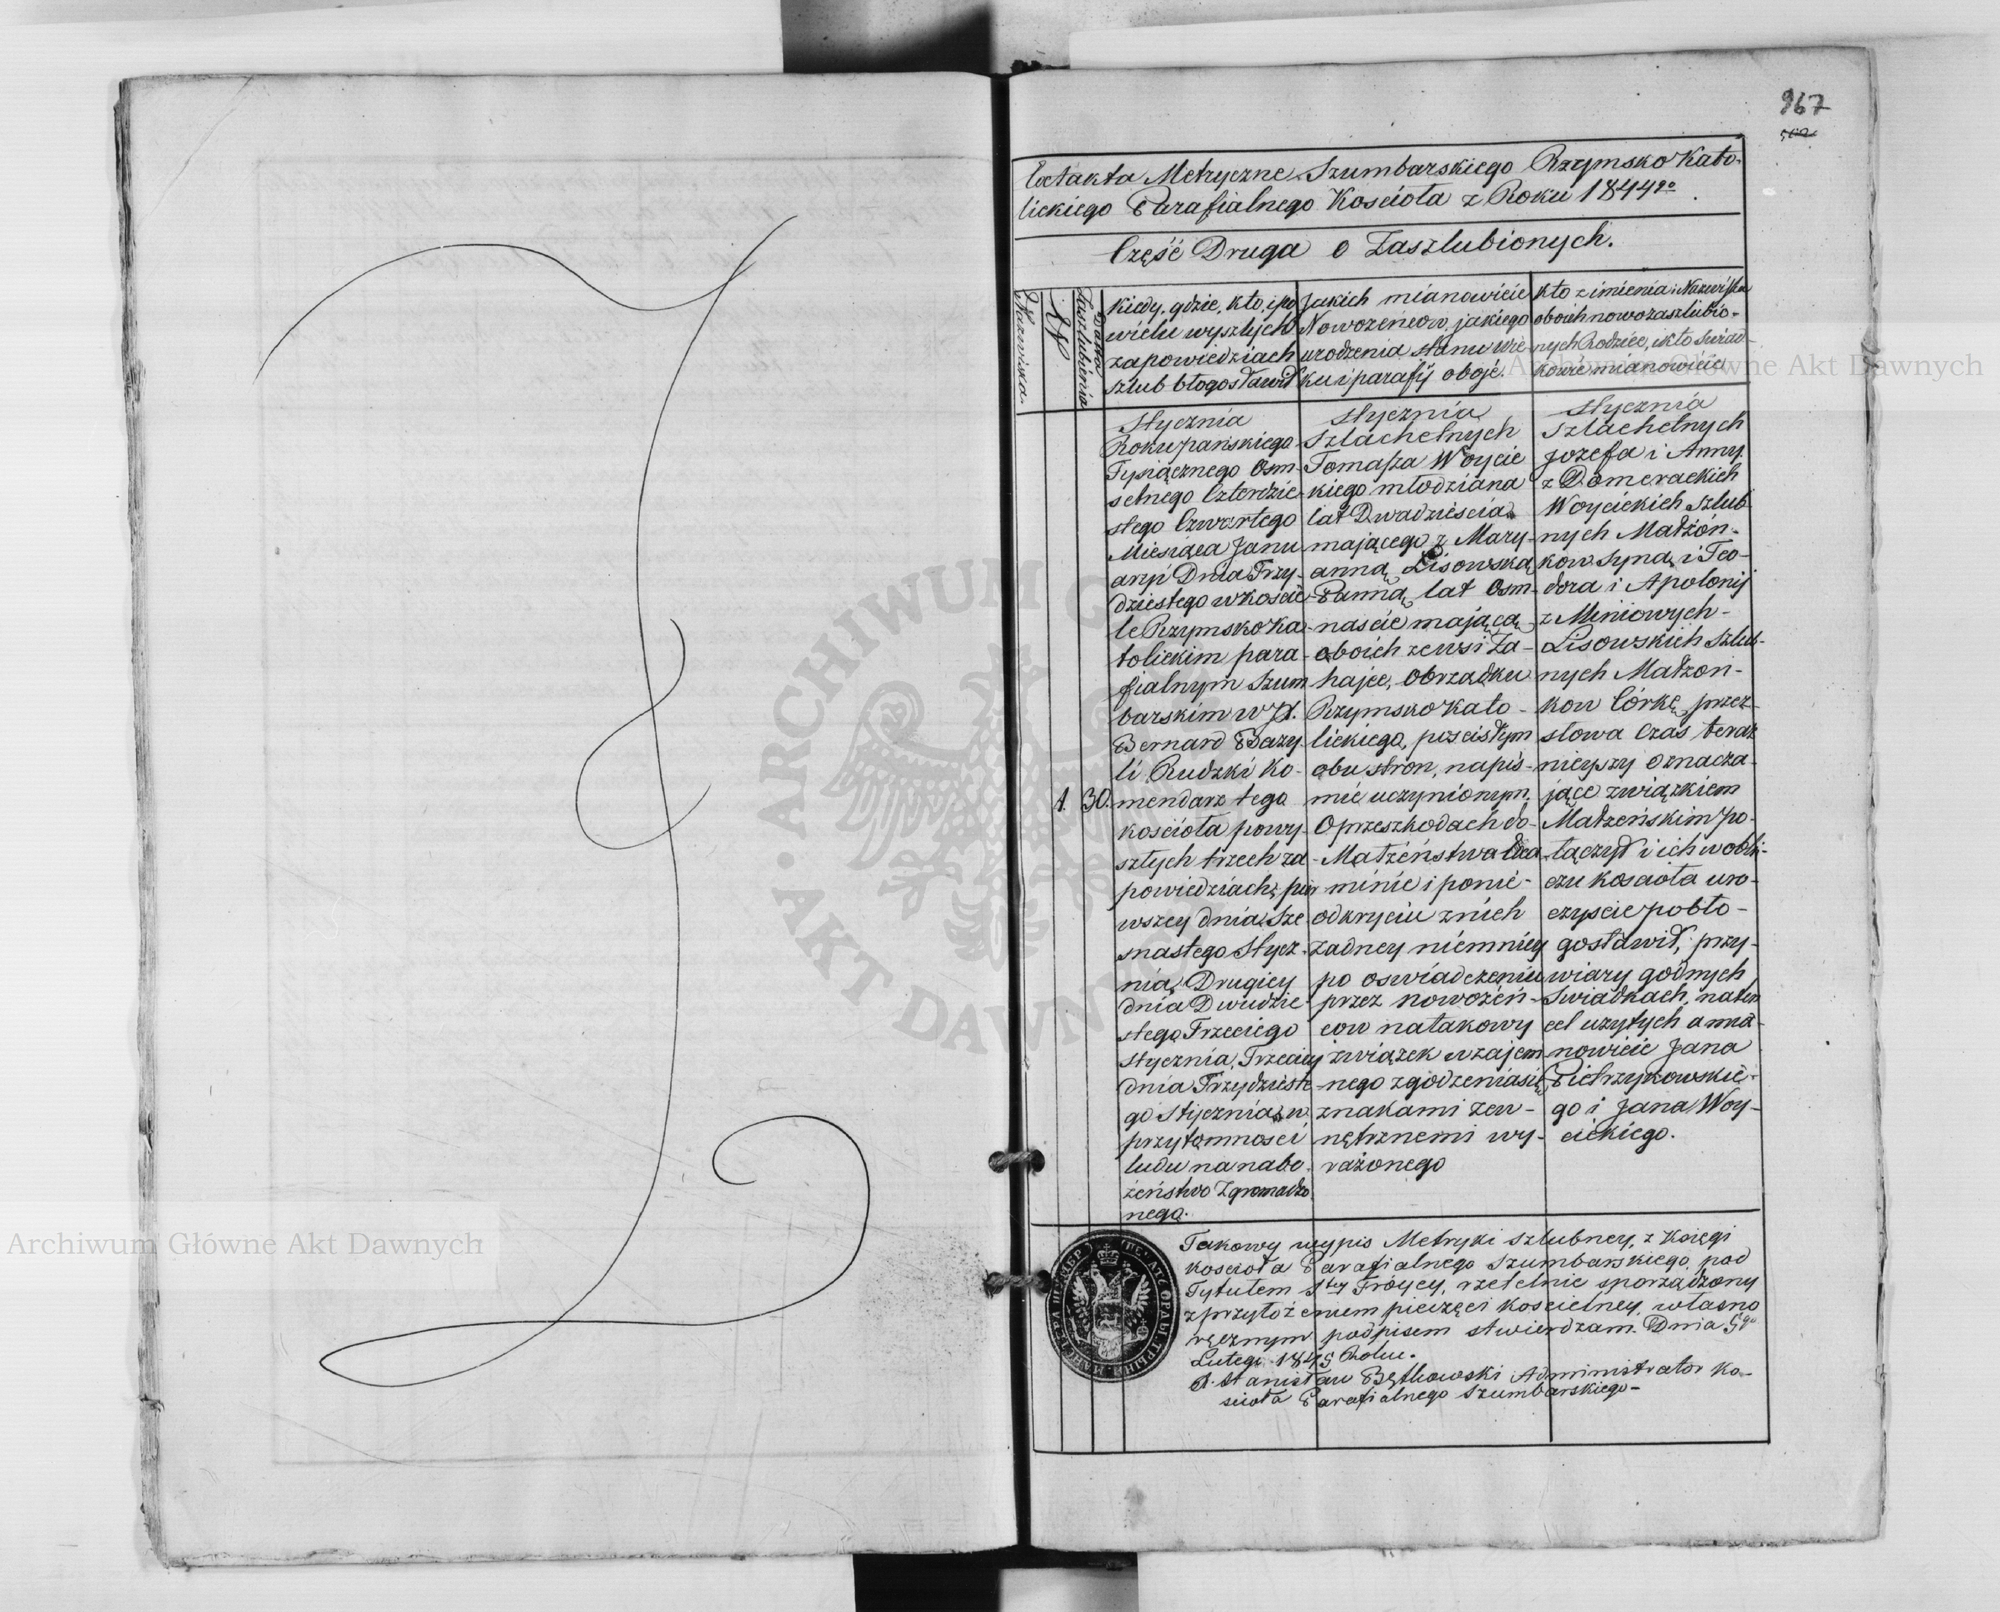 967
Extakta Metryczne Szumbarskiego Rzymsko Kato-
lickiego Parafialnego Kościoła z Roku 1844go.
Część Druga o Zaszlubionych.
Nazwiska.
N
Data Zaszlubienia
Kiedy, gdzie, kto, i po
wielu wyszłych
zapowiedziach
szlub błogosławił
Jakich mianowicie
Nowożeńcow, jakiego
urodzenia stanu wie-
ku i parafij oboje.
Kto z imienia i Nazwiska
oboich nowozaszlubio-
nych Rodzice, i kto Swiad-
kowie mianowicie
1.
30.
Stycznia
Roku Pańskiego
Tysiącznego Osm-
setnego Czterdzie-
stego Czwartego
Miesiąca Janu
aryi Dnia Trzy-
dziestego w Koscie-
le Rzymsko Ka-
tolickim para-
fialnym Szum
barskim w X.
Bernard Bazy-
li Rudzki Ko-
mendarz tego
kościoła powy-
szłych trzech za-
powiedziach, pier
wszey dnia Sze
snastego Stycz-
nia, Drugiey
dnia Dwudzie-
stego Trzeciego
Stycznia, Trzeciey
dnia Trzydzieste-
go Stycznia, w
przytomności
ludu na nabo-
żeństwo Zgromadzo
nego.
Stycznia
Szlachetnych
Tomasza Woycic
kiego młodziana
lat Dwadzieścia
mającego z Mary-
anną Lisowską
Panną, lat Osm-
naście mającą,
oboich ze wsi Za-
hajce, Obrządku
Rzymsko Kato-
lickiego, po scisłym
obu stron, na piś-
mie uczynionym,
O przeszkodach do
Małżeństwa
minie i ponie-
odkryciu z nich
żadney niemniey
po oswiadczeniu
przez nowożeń-
cow na takowy
związek wzajem
nego zgodzenia się
znakami zew-
nętrznemi wy-
rażonego
Stycznia
Szlachetnych
Jozefa i Anny
z Domerackich
Woycickich Szlub
nych Małżón-
kow Syna, i Teo-
dora i Apolonij
z Meniowych
Lisowskich Szlub-
nych Małżon-
kow Córkę, przez
słowa Czas teraz
nieyszy oznacza-
jące związkiem
Małżeńskim po-
łączył i ich w obli-
czu kosciota uro-
czyscie pobło-
gosławił, przy-
wiary godnych
Swiadkach, na ten
cel użytych a mia-
nowicie Jana
Pietrzykowskie-
go i Jana Woy-
cickiego.
Takowy wypis Metryki szlubney, z Księgi
kosciota Parafialnego Szumbarskiego, pod
Tytułem Stey Tróycy, rzetelnie sporządzony
z przyłożeniem pieczęci koscielney, własno
ręcznym podpisem stwierdzam. Dnia 5go
Lutego 1845 Roku.
X. Stanisław Bętkowski Administrator Ko-
scioła Parafialnego Szumbarskiego-
Archiwum Główne Akt Dawnych
Archiwum Główne Akt Dawnych
ARCHIWUM
AKT DAWNYCH